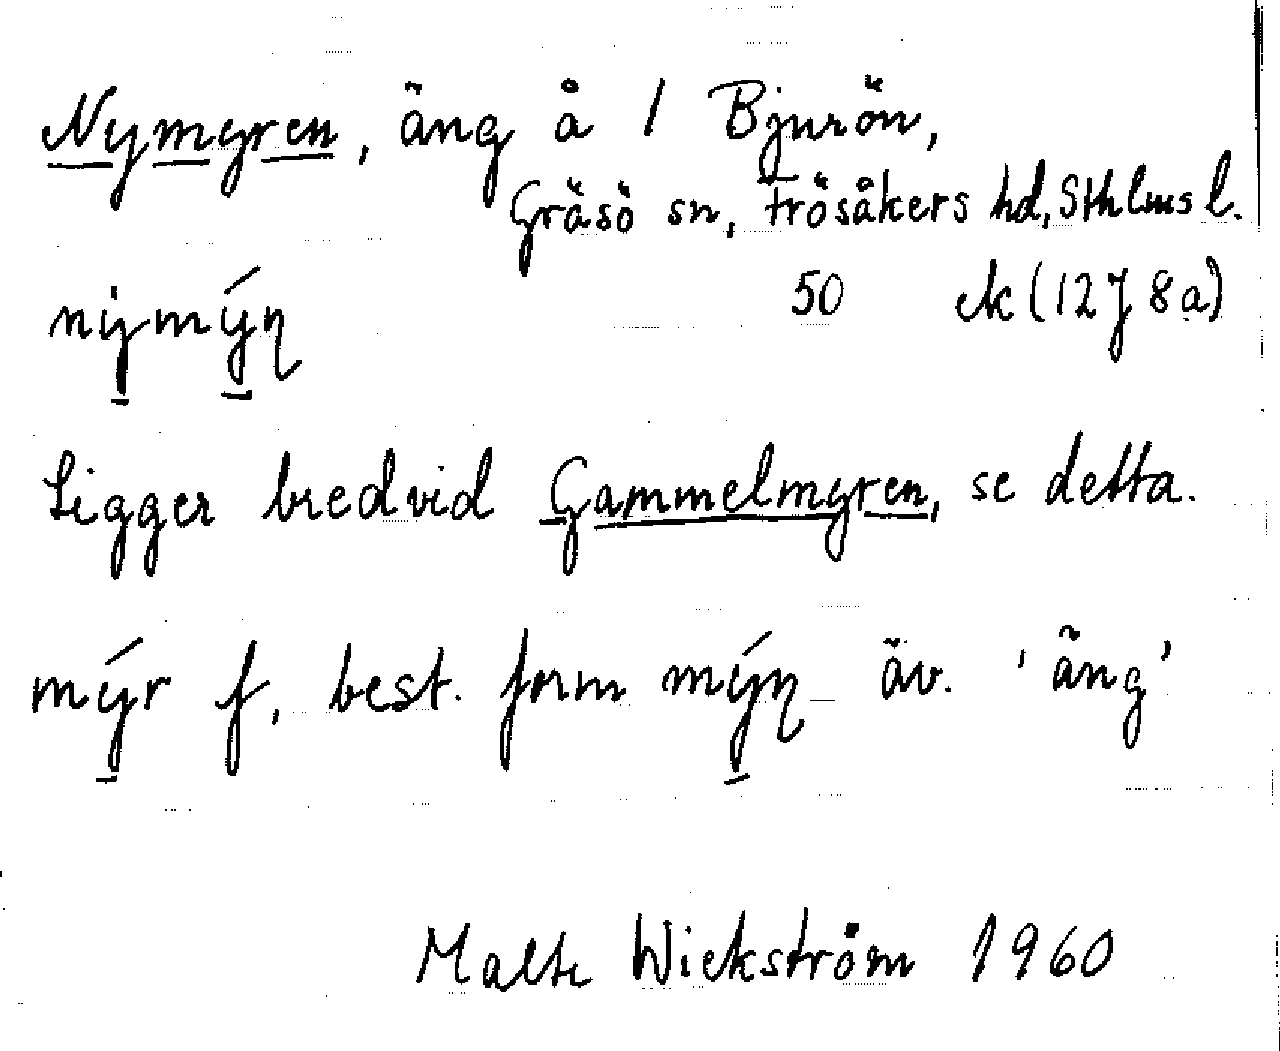 Nymyren, äng å 1 Bjurön,
Gräsö sn, Frösåkers hd, Sthlms l.
nẏmýn 50 ek (12J 8a)
Ligger bredvid Gammelmyren, se detta.
mýr f, best. form mýn äv. 'äng'
Malte Wickström 1960